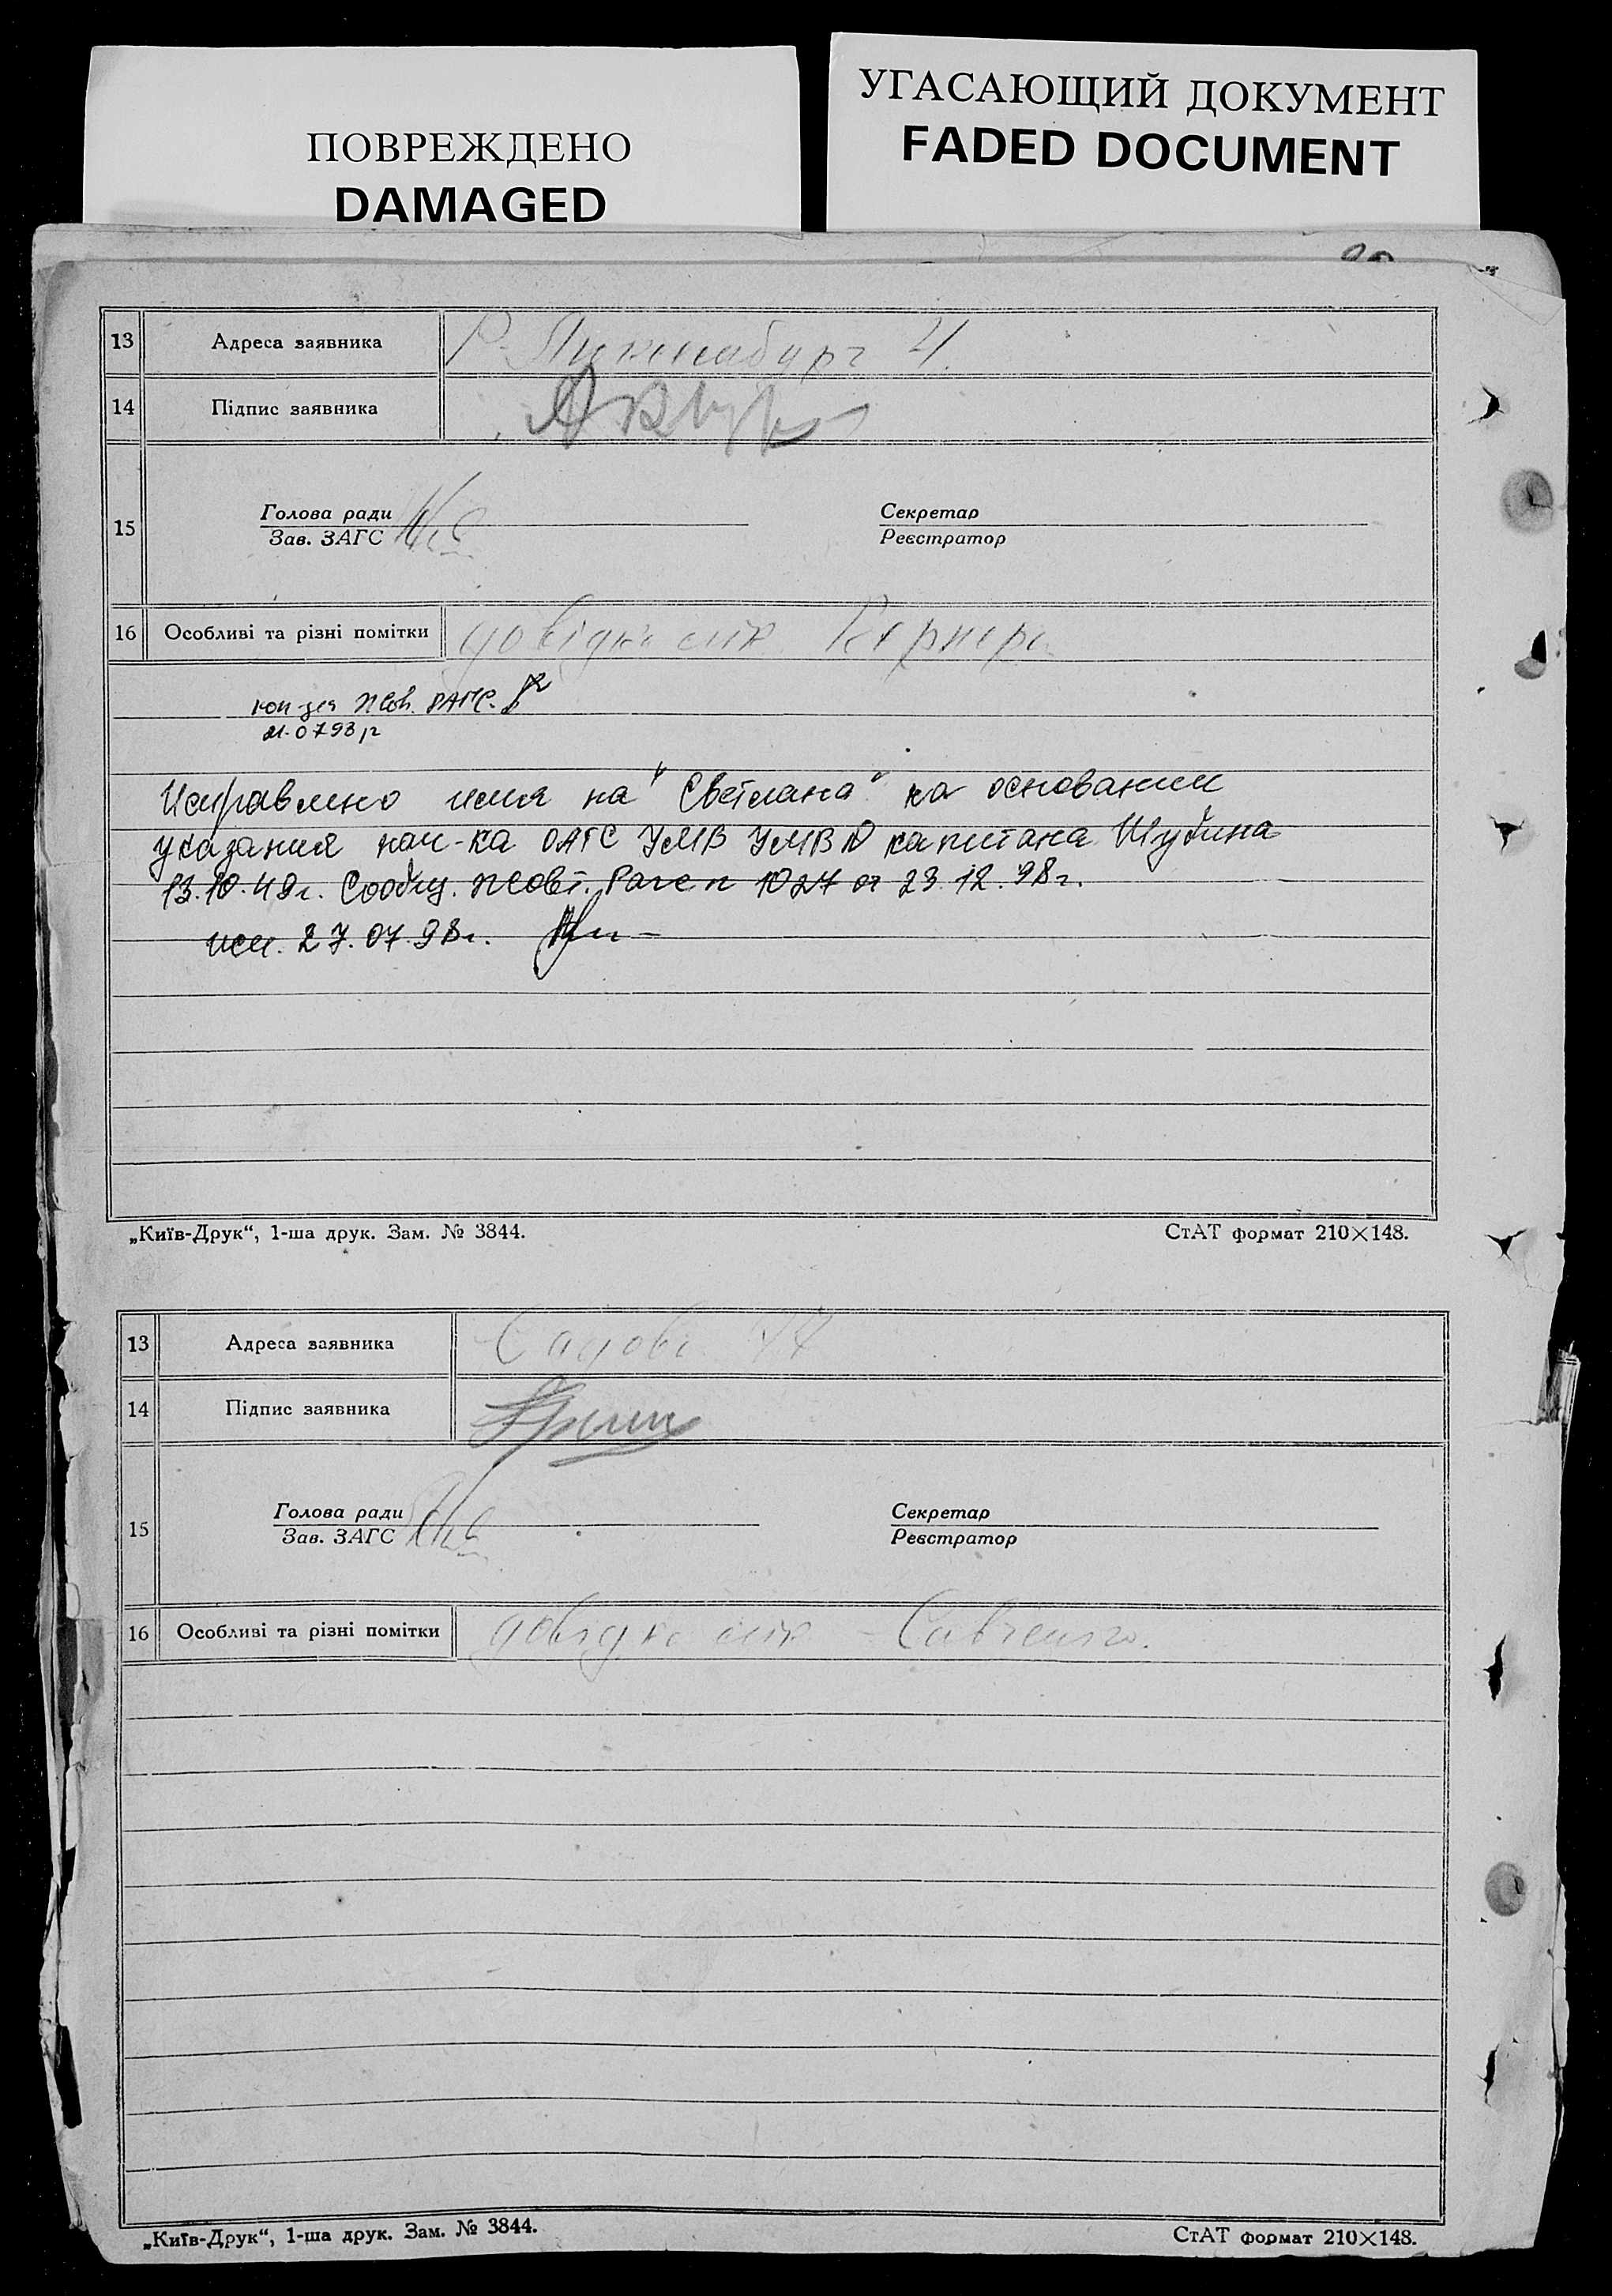 ПОВРЕЖДЕНО
DAMAGED
УГАСАЮЩИЙ ДОКУМЕНТ
FADED DOCUMENT
13 Адреса заявника Р. Люксембург 21.
14 Підпис заявника
15 Голова ради Секретар
Зав. ЗАГС Реєстратор
16 Особливі та різні помітки довідка лік
Исправлено имя на "Светлана" на основании
указания нач-ка ОАГС УМВ УМВД капитана Шубина
13.10.49г. Сообщ. Жовт. Рагс n 1027 от 23.12.98г.
27.07.98г.
„Київ-Друк“, 1-ша друк. Зам. № 3844. СтАТ формат 210×148.
13 Адреса заявника Садова
14 Підпис заявника
15 Голова ради Секретар
Зав. ЗАГС Реєстратор
16 Особливі та різні помітки довідка лік - Савченко.
„Київ-Друк“, 1-ша друк. Зам. № 3844. СтАТ формат 210×148.